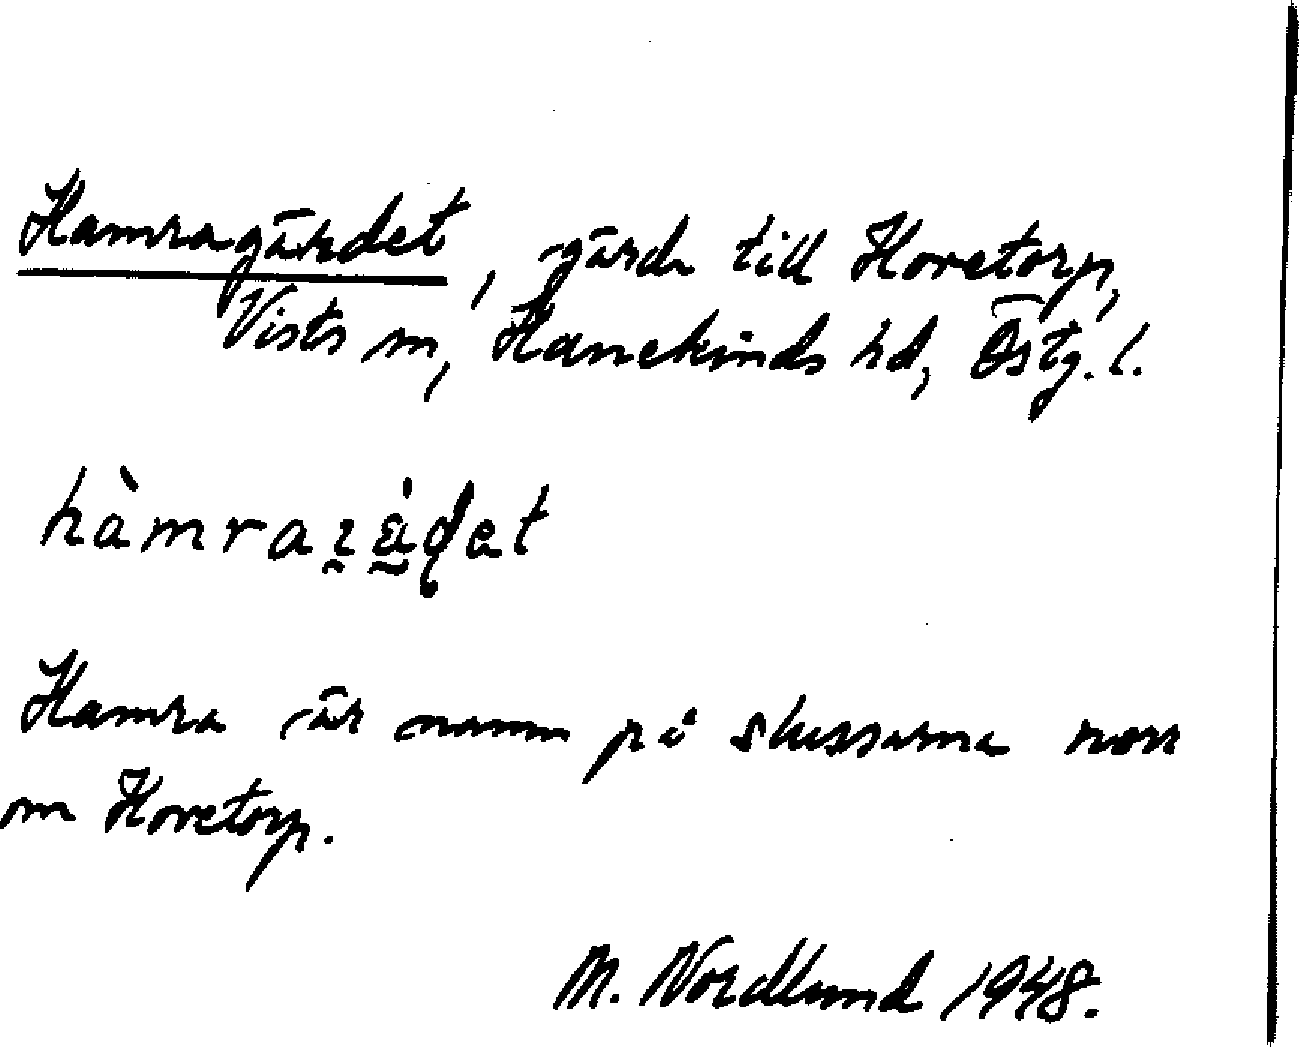 Hamragärdet, gärde till Hovetorp,
Vists sn, Hanekinds hd, Östg. l.
hàmraɪ̰ä̀ḍet
Hamra är namn på slussarna norr
om Hovetorp.
M. Nordlund 1948.